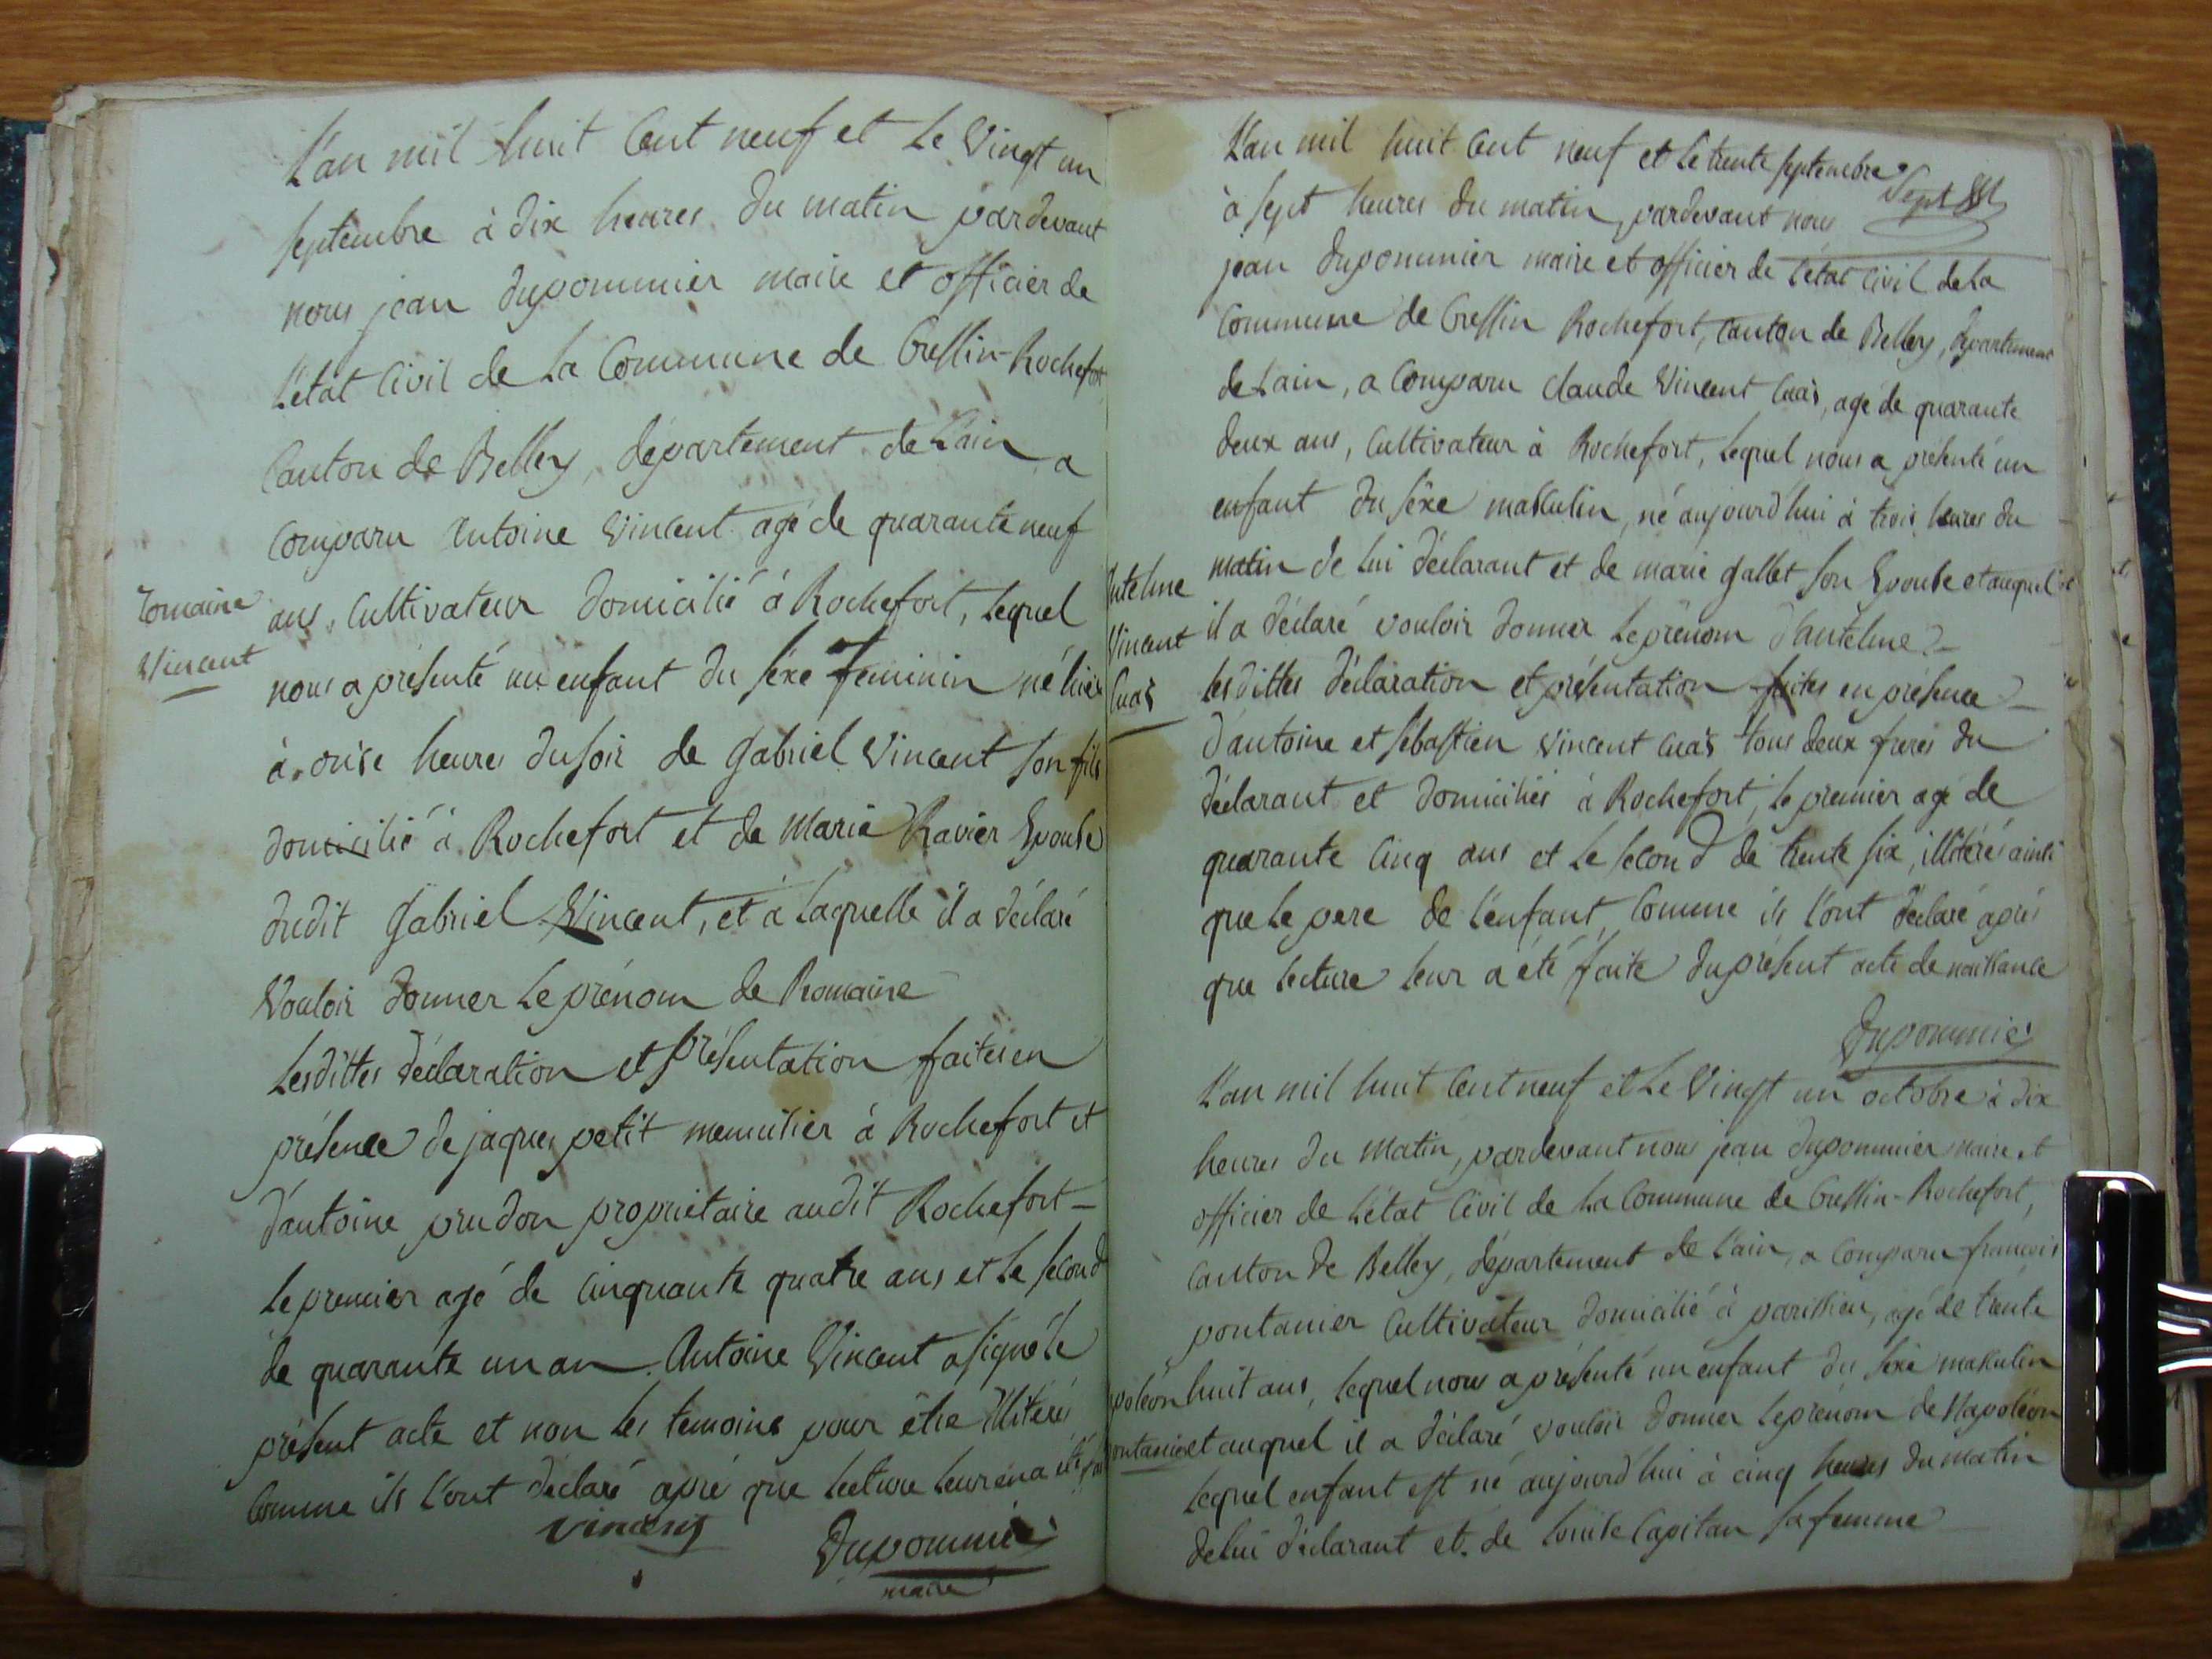 L'an mil huit Cent neuf et Le Vingt un
septembre à dix heures du matin pardevant
nous jean dupommier maire et officier de
L'état Civil de La Commune de Cressin-Rochefort
Canton de Belley, département de L'ain a
Comparu Antoine Vincent agé de quarante neuf
ans, Cultivateur domicilié à Rochefort, Lequel
nous a présenté un enfant du séxe feminin né hier
à onze heures du soir de Gabriel Vincent son fils
domicilié à Rochefort et de Marie Ravier Epouse
dudit Gabriel Vincent, et à Laquelle il a déclaré
Vouloir donner Le prénom de Romaine
Lesdittes déclaration et présentation faites en
présence de jaques petit menuisier à Rochefort et
d'antoine prudon propriétaire audit Rochefort
Le premier agé de Cinquante quatre ans et Le second
de quarante un an. Antoine Vincent a signé Le
présent acte et non Les temoins pour être illitérés
Comme ils L'ont déclaré après que Lecture Leur en a été
Vincent
Dupommier
maire
Romaine
Vincent
L'an mil huit Cent neuf et Le trente septembre
à sept heures du matin, pardevant nous
jean dupommier maire et officier de L'état Civil de La
Commune de Cressin Rochefort, Canton de Belley, département
de L'ain, a Comparu Claude Vincent Cuas, agé de quarante
deux ans, Cultivateur à Rochefort, Lequel nous a présenté un
enfant du séxe masculin, né aujourd'hui à trois heures du
matin de Lui déclarant et de marie gallet son Epouse et auquel
il a déclaré vouloir donner Le prénom d'antelme
Lesdittes déclaration et présentation faites en présence
d'antoine et sébastien Vincent Cuas tous deux freres du
déclarant et domiciliés à Rochefort, Le premier agé de
quarante Cinq ans et Le second de trente six, illitérés ainsi
que Le pere de L'enfant, Comme ils L'ont déclaré après
que Lecture Leur a été faite du présent acte de naissance
Dupommier
Antelme
Vincent
Cuas
L'an mil huit Cent neuf et Le Vingt un octobre à dix
heures du Matin, pardevant nous jean dupommier maire et
officier de L'état Civil de La Commune de Cressin-Rochefort,
Canton de Belley, département de L'ain, a Comparu françois
pontanier Cultivateur domicilié à parissieu, agé de trente
huit ans, Lequel nous a présenté un enfant du séxe masculin
et auquel il a déclaré vouloir donner Le prénom de Napoléon
Lequel enfant est né aujourd'hui à cinq heures du matin
de Lui déclarant et de Louise Capitan sa femme